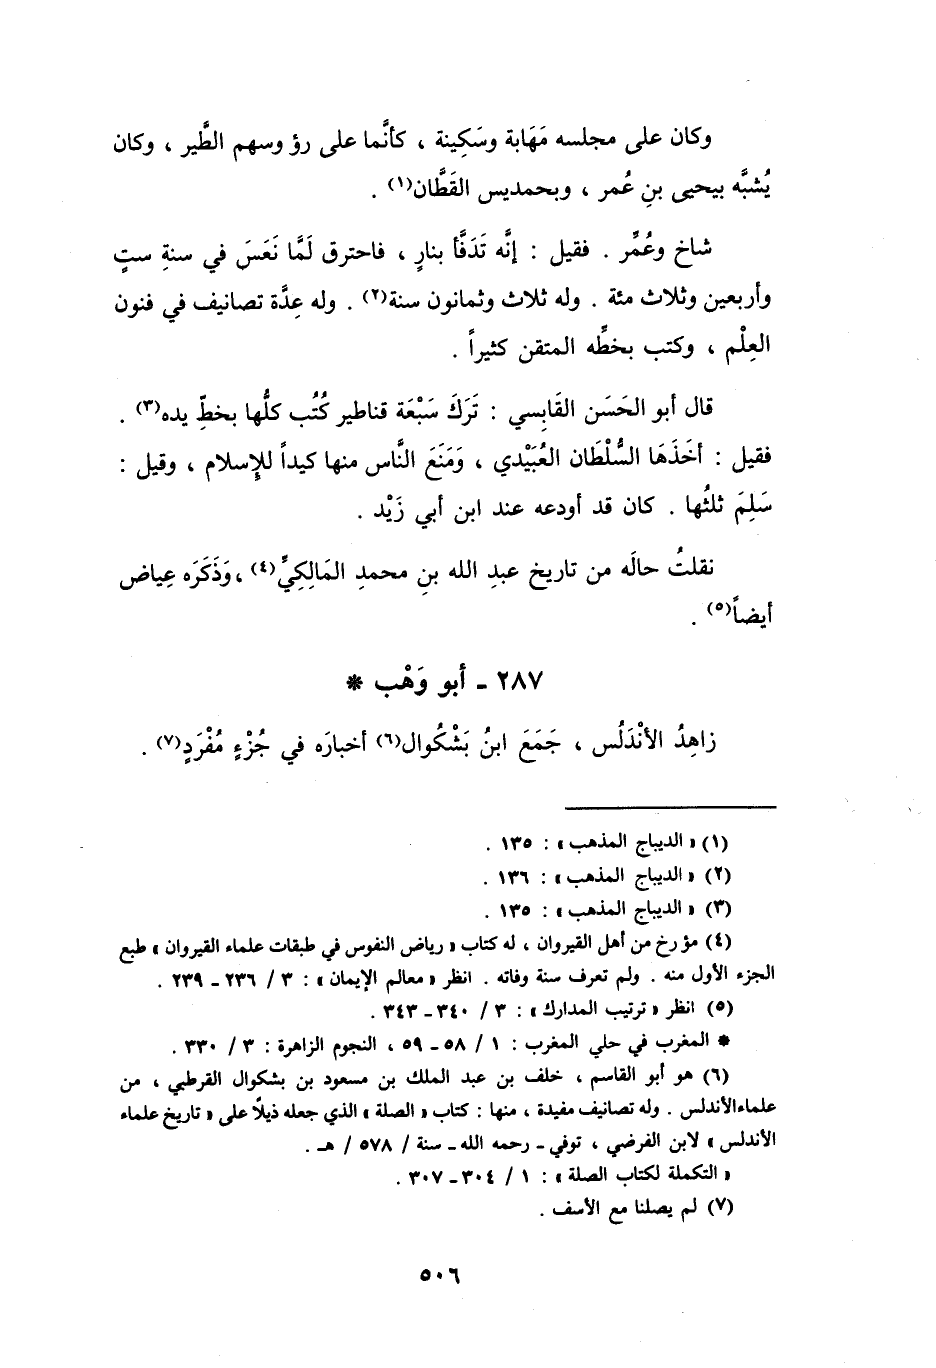 وكان على مجلسه مَهَابة وسَكِينة ، كأنَّما على رؤ وسهم الطَّير ، وكان
يُشبَّه بيحيى بنِ عُمر ، وبحمديس القَطَّان(١) .
شاخ وعُمِّر . فقيل : إنَّه تَدَفَّأ بنارٍ ، فاحترق لَمَّا نَعَسَ في سنةِ ستٍ
وأربعين وثلاث مئة . وله ثلاث وثمانون سنة(٢) . وله عِدَّة تصانيف في فنون
العِلْم ، وكتب بخطِّه المتقن كثيراً .
قال أبو الحَسَن القَابِسي : تَرَكَ سَبْعَة قناطير كُتُب كلُّها بخطِّ يده(٣) .
فقيل : أخَذَهَا السُّلْطَان العُبَيْدي ، وَمَنَعَ النَّاس منها كيداً للإِسلام ، وقيل :
سَلِمَ ثلثُها . كان قد أودعه عند ابن أبي زَيْد .
نقلتُ حالَه من تاريخ عبدِ الله بنِ محمدِ المَالِكِيِّ(٤) ، وَذَكَرَه عِياض
أيضاً(٥) .
٢٨٧ ـ أبو وَهْب *
زاهِدُ الأنْدَلُس ، جَمَعَ ابنُ بَشْكُوال(٦) أخبارَه في جُزْءٍ مُفْرَدٍ(٧) .
(١) « الديباج المذهب » : ١٣٥ .
(٢) « الديباج المذهب » : ١٣٦ .
(٣) « الديباج المذهب » : ١٣٥ .
(٤) مؤ رخ من أهل القيروان ، له كتاب « رياض النفوس في طبقات علماء القيروان » طبع
الجزء الأول منه . ولم تعرف سنة وفاته . انظر « معالم الإيمان » : ٣ / ٢٣٦ ـ ٢٣٩ .
(٥) انظر « ترتيب المدارك » : ٣ / ٣٤٠ ـ ٣٤٣ .
* المغرب في حلي المغرب : ١ / ٥٨ ـ ٥٩ ، النجوم الزاهرة : ٣ / ٣٣٠ .
(٦) هو أبو القاسم ، خلف بن عبد الملك بن مسعود بن بشكوال القرطبي ، من
علماء الأندلس . وله تصانيف مفيدة ، منها : كتاب « الصلة » الذي جعله ذيلًا على « تاريخ علماء
الأندلس » لابن الفرضي ، توفي ـ رحمه الله ـ سنة / ٥٧٨ / هـ .
« التكملة لكتاب الصلة » : ١ / ٣٠٤ ـ ٣٠٧ .
(٧) لم يصلنا مع الأسف .
٥٠٦